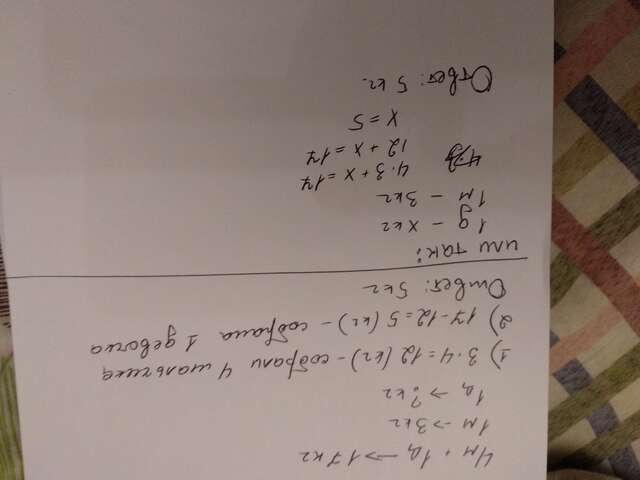 4м + 1д —> 17кг
1м —> 3кг
1д —> ? кг
1) 3·4=12 (кг) – собрали 4 мальчика
2) 17-12=5 (кг) – собрала 1 девочка
Ответ: 5кг
или так:
1д – х кг
1м – 3кг
4·3+х=17
12+х=17
х=5
Ответ: 5 кг.